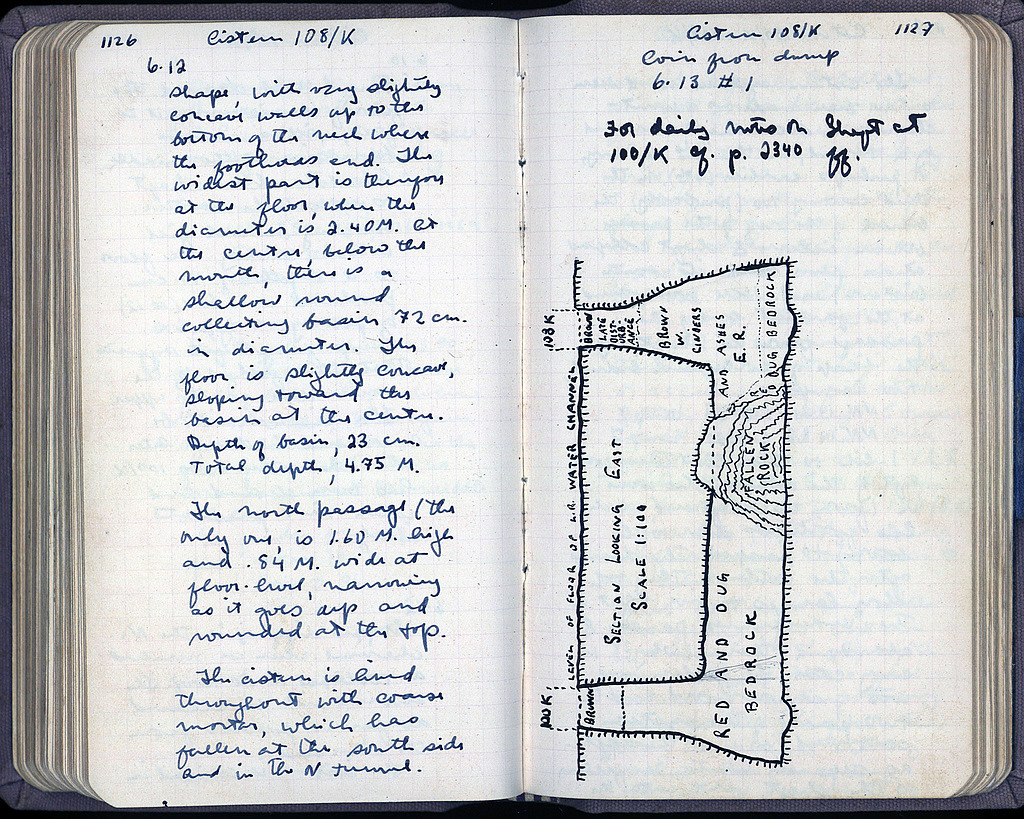 1126 Cistern 108/K
6.12
shape, with very slightly
concave walls up to the
bottom of the neck where
the footholds end. The
widest part is therefore
at the floor, where the
diameter is 2.40 M. At
the centre, below the
mouth, there is a
shallow round
collecting basin 72 cm.
in diameter. The
floor is slightly concave,
sloping toward the
basin at the centre.
Depth of basin, 23 cm.
Total depth, 4.75 M.
The north passage (the
only one, is 1.60 M. high
and .84 M. wide at
floor-level, narrowing
as it goes up and
rounded at the top.
The cistern is lined
throughout with coarse
mortar, which has
fallen at the south side
and in the N tunnel.
Cistern 108/K 1127
Coin from dump
6.13 #1
For daily notes on Shaft at
100/K cf. p. 2340 ff.
108 K
BROWN
LATE
DIST-
URB-
ANCE
BROWN
W.
CINDERS
AND ASHES
E.R.
DUG BEDROCK
LEVEL OF FLOOR OF L.R. WATER CHANNEL
SECTION LOOKING EAST
SCALE 1:100
FALLEN
ROCK
RED AND DUG
BEDROCK
100 K
BROWN